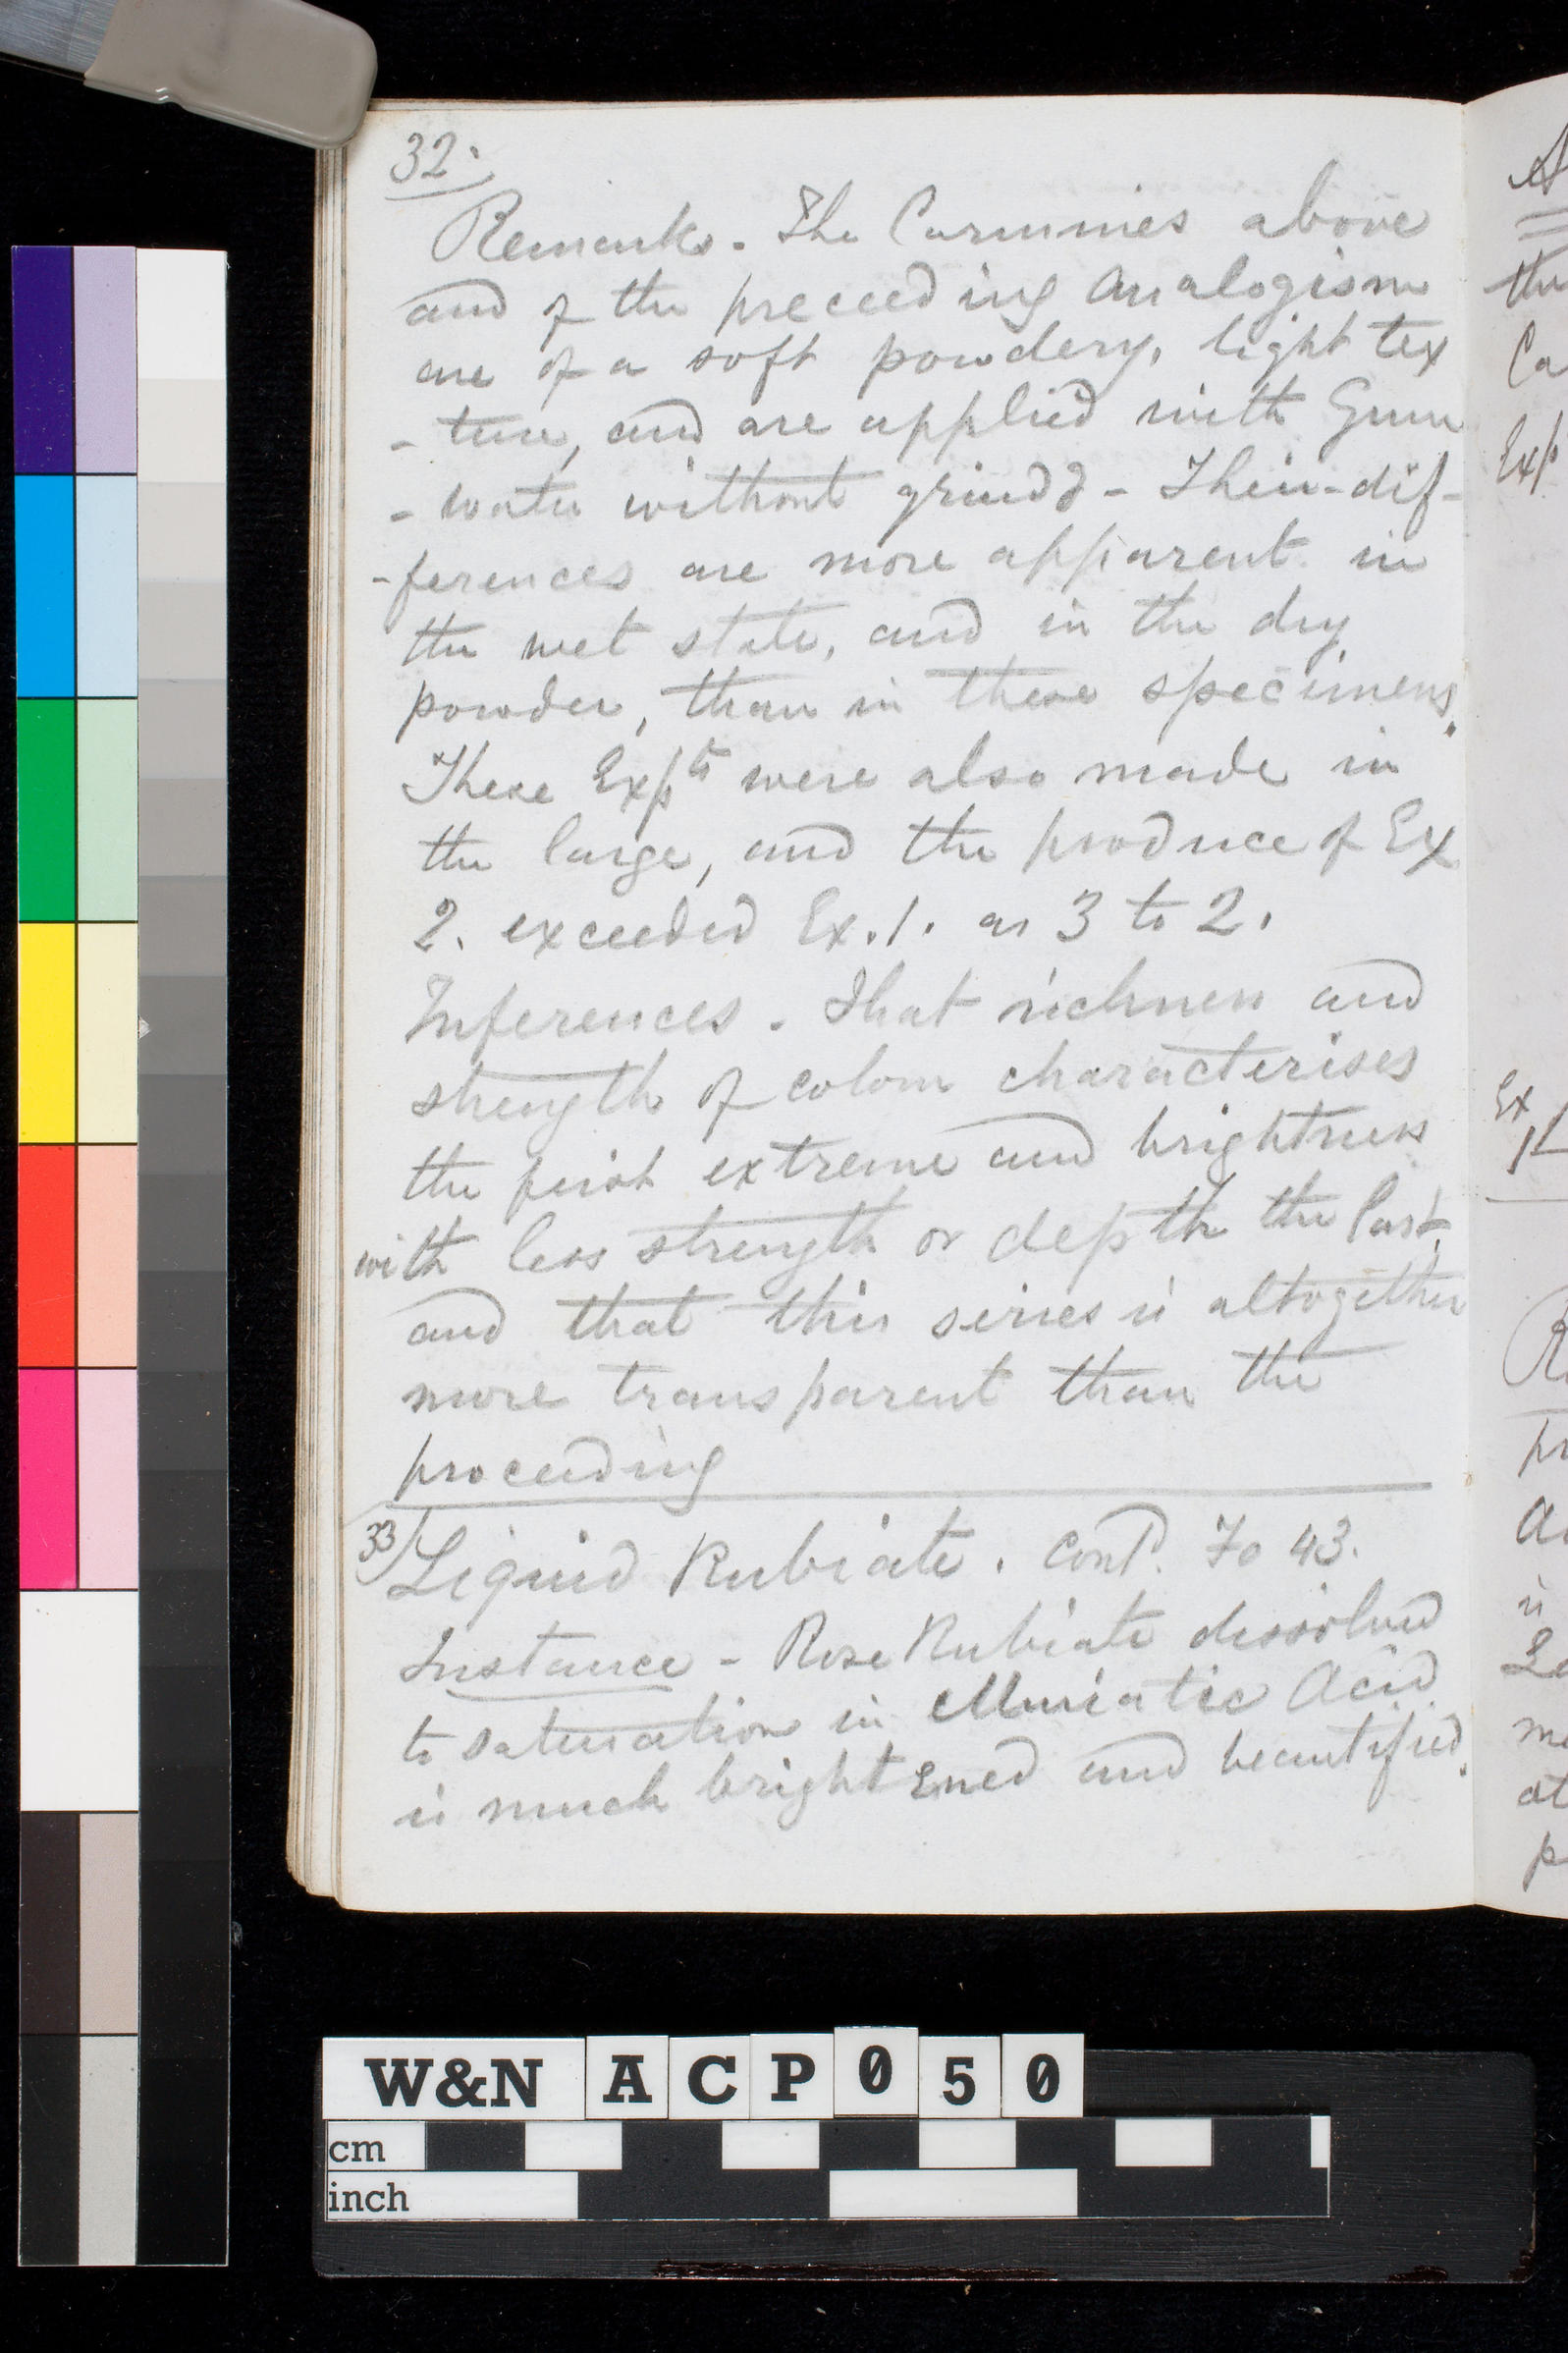 32.
Remarks. The Carmines above
and of the preceeding analogism
are of a soft powdery, light tex
- ture, and are applied with Gum
- water without grindg - Their dif-
-ferences are more apparent in
the wet state, and in the dry
powder, than in these specimens.
These Expts were also made in
the large, and the produce of Ex
2. exceeded Ex. 1. as 3 to 2.
Inferences. That richness and
strength of colour characterises
the first extreme and brightness
with less strength or depth the last,
and that this series is altogether
more transparent than the
proceeding
33/ Liquid Rubiate. Contd. Fo 43.
Instance - Rose Rubiate dissolved
to saturation in Muriatic Acid
is much brightened and beautified.
the
Ca
Exp
Ex
W&N ACP050
cm
inch